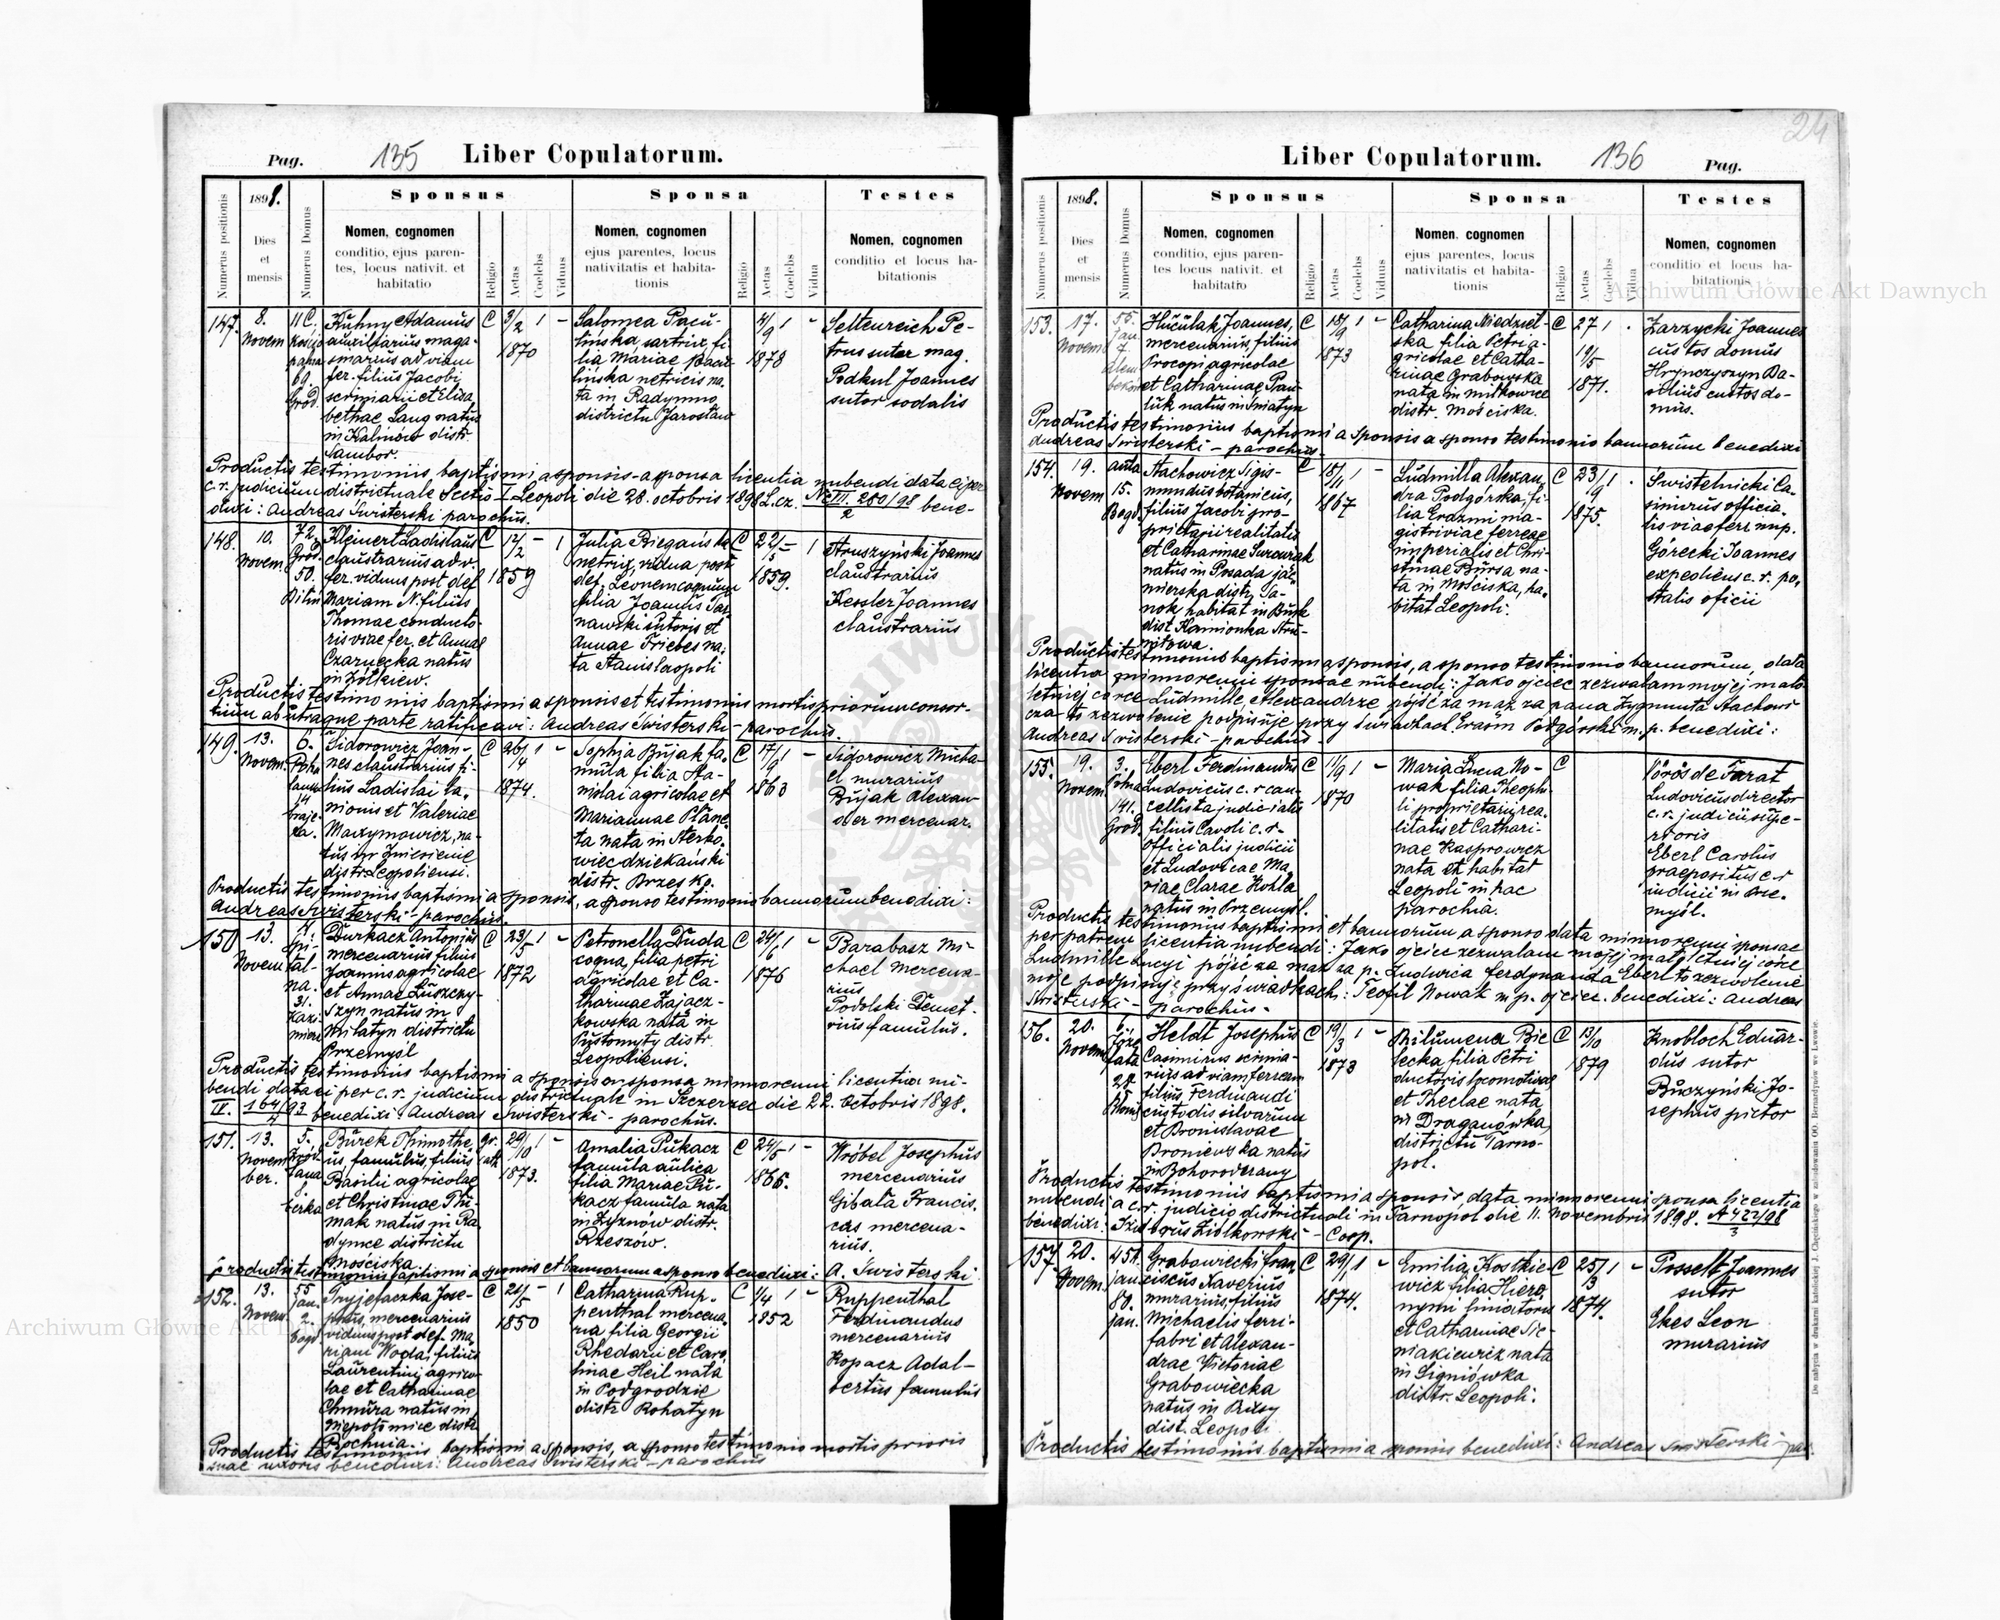 Pag. 135 Liber Copulatorum.
Numerus positionis
1898.
Dies
et
mensis
Numerus Domus
Sponsus
Nomen, cognomen
conditio, ejus paren-
tes, locus nativit. et
habitatio
Religio
Aetas
Coelebs
Viduus
Sponsa
Nomen, cognomen
ejus parentes, locus
nativitatis et habita-
tionis
Religio
Aetas
Coelebs
Vidua
Testes
Nomen, cognomen
conditio et locus ha-
bitationis
147. 8. Novem
Kühny Adamus
auxiliarius maga-
smarius ad viam
fer. filius Jacobi
scriniarii et Elisa
bethae Laug natus
in Kalinów distr.
Sambor.
C 3/2 1 -
1870
Salomea Pacu-
linska, sartrix, fi-
lia Mariae Pacu-
linska netricis na-
ta in Radymno
districtu Jaroslau
4/9 1 -
1878
Seltenreich Pe-
trus sutor mag.
Podkul Joannes
sutor sodalis
Productis testimoniis baptismi a sponsis - a sponsa licentia nubendi data ei per
c.r. judicium districtuale Sectio I Leopoli die 28. octobris 1898 L. cz. Nc III. 280/98 bene-
2
dixi: Andreas Swisterski parochus.
148. 10. Novem
72 Gród. 50.
Kleinert Ladislaus
claustrarius ad v.
fer. viduus post def
Mariam N. filius
Thomae conducto-
ris viae fer. et Annae
Czarnecka natus
in Żółkiew.
C 12/2 - 1
1859
Julia Biegańska
netrix, vidua post
def. Leonem coquum
filia Joannis Tar
nawski sutoris et
Annae Friebes na-
ta Stanislaopoli
C 22/5 - 1
1859.
Struszyński Joannes
claustrarius
Kessler Joannes
claustrarius
Productis testimoniis baptismi a sponsis et testimoniis mortis priorum consor-
tium ab utraque parte ratificavi: Andreas Swisterski - parochus.
149. 13. Novem.
6.
Sidorowicz Joan-
nes claustrarius fi-
lius Ladislai la-
nionis et Valeriae
Maxymowicz, na-
tus in Zniesienie
distr. Leopoliensi.
C 26/4 1 -
1874.
Sophia Bujak fa-
mula filia Sta-
nislai agricolae et
Mariannae Plane
ta nata in Sterko-
wiec dziekański
distr. Brzesko.
C 17/9 1 -
1863
Sidorowicz Micha-
el murarius
Bujak Alexan
der mercenar.
Productis testimoniis baptismi a sponsis, a sponso testimonio bannorum benedixi:
Andreas Swisterski - parochus.
150 13. Novem
Durkacz Antonius
mercenarius filius
Joannis agricolae
et Annae Luszczy-
szyn natus in
Milatyn districtu
Przemyśl
C 23/5 1 -
1872
Petronella Duda
coqua, filia Petri
agricolae et Ca-
tharinae Zajacz-
kowska nata in
Pustomyty distr.
Leopoliensi.
C 24/6 1 -
1876
Barabasz Mi-
chael mercena-
rius
Podolski Demet-
rius famulus.
Productis testimoniis baptismi a sponsis a sponsa minorenni licentia nu-
bendi data ei per c.r. judicium districtuale in Szczerzec die 22. Octobris 1898.
benedixi: Andreas Swisterski - parochus.
151. 13. Novem ber. 5.
Burek Thimothe-
us, famulus, filius
Basilii agricolae
et Christinae Thu-
mak natus in Ra
dymce districtu
Mościska
gr. cath 29/10 1 -
1873.
Amalia Pukacz
famula aulica
filia Mariae Pu-
kacz famula nata
in Zyznów distr.
Rzeszów.
C 24/5 1 -
1866.
Wróbel Josephus
mercenarius
Gibala Francis.
cus mercena-
rius.
Productis testimoniis baptismi a sponsis et bannorum a sponso benedixi: A. Swisterski
152. 13. Novem. 55 Jan. 2.
Pryjefaczka Jose-
phus, mercenarius
viduus post def. Ma-
riam Woda, filius
Laurentii agrico-
lae et Catharinae
Chmura natus in
Niepołomice distr
Bochnia.
C 21/5 - 1
1850
Catharina Rup-
penthal mercena-
ria filia Georgii
Rhedarii et Caro-
linae Heil nata
in Podgrodzie
distr Rohatyn
C 1/4 1 -
1852
Ruppenthal
Ferdinandus
mercenarius
Kopacz Adal-
bertus famulus
Productis testimoniis baptismi a sponsis, a sponso testimonio mortis prioris
suae uxoris benedixi: Andreas Swisterski - parochus
24
Liber Copulatorum. 136 Pag.
Numerus positionis
1898.
Dies
et
mensis
Numerus Domus
Sponsus
Nomen, cognomen
conditio, ejus paren-
tes locus nativit. et
habitatio
Religio
Aetas
Coelebs
Viduus
Sponsa
Nomen, cognomen
ejus parentes, locus
nativitatis et habita-
tionis
Religio
Aetas
Coelebs
Vidua
Testes
Nomen, cognomen
conditio et locus ha-
bitationis
153. 17. Novem 55. Jan. 7.
Huculak Joannes,
mercenarius, filius
Procopi agricolae
et Catharinae Paw-
luk natus in Śniatyn
C 18/9 1 -
1873
Catharina Niedziel-
ska filia Petri a-
gricolae et Catha-
rinae Grabowska
nata in Mitkowice
distr. Mościska.
C 27 1 .
19/5
1871.
Zarzycki Joannes
custos domus
Hrynczyszyn Ba-
silius custos do-
mus.
Productis testimoniis baptismi a sponsis a sponso testimonio bannorum benedixi
Andreas Swisterski - parochus.
154. 19. Novem 15.
Stachowicz Sigis-
mundus botanicus,
filius Jacobi pro-
prietarii realitatis
et Catharinae Surowiak
natus in Posada jać-
mierska distr. Sa-
nok habitat in Busk
dist Kamionka Stru-
mitowa.
C 15/11 1 -
1867
Ludmilla Alexan-
dra Podgórska, fi-
lia Erazmi ma-
gistri viae ferreae
imperialis et Chri-
stinae Bursa na-
ta in Mościska, ha-
bitat Leopoli.
C 23/9 1 .
1875.
Swistelnicki Ca-
simirus officia-
lis viae ferr. nup.
Górecki Joannes
expediens c. r. po-
stalis oficii
Productis testimoniis baptismi a sponsis, a sponso testimonio bannorum, data
licentia minorenni sponsae nubendi: Jako ojciec zezwalam mojej mało
letniej córce Ludmille Alexandrze pójść za mąż za pana Zygmunta Stachowi
cza to zezwolenie podpisuję przy świadkach Erazm Podgórski m. p. benedixi:
Andreas Swisterski - parochus.
155. 19. Novem. 3. 141. Gród.
Eberl Ferdinandus
Ludovicus c. r. can-
cellista judicialis
filius Caroli c. r.
officialis judicii
et Ludovicae Ma-
riae Clarae Kohla
natus in Przemyśl.
C 11/9 1 -
1870
Maria Lucia No-
wak filia Theophi-
li proprietarii rea-
litatis et Cathari-
nae Kasprowicz
nata et habitat
Leopoli in hac
parochia.
C
Vörös de Farat
Ludovicus director
c. r. judicii supe-
rioris
Eberl Carolus
praepositus c. r
iudicii in Prze-
myśl.
Productis testimoniis baptismi et bannorum a sponso data minorenni sponsae
per patrem licentia nubendi: Jako ojciec zezwalam mojej małoletniej córce
Ludmille Lucyi pójść za mąż za p. Ludwika Ferdynanda Eberl to zezwolenie
moje podpisuję przy świadkach: Teofil Nowak m. p. ojciec. benedixi: Andreas
Swisterski - parochus -
156. 20. Novem 6. 28.
Heldt Josephus
Casimirus scrinia-
rius ad viam ferream
filius Ferdinandi
custodis silvarum
et Bronislavae
Broniewska natus
in Bohorodczany
C 19/3 1 -
1873
Philumena Bie
lecka filia Petri
ductoris locomotivae
et Theclae nata
in Draganówka
districtu Tarno-
pol.
C 13/10
1879
Knobloch Eduar-
dus sutor
Buczyński Jo-
sephus pictor
Productis testimoniis baptismi a sponsis data minorenni sponsa licentia
nubendi a c.r. judicio districtuali in Tarnopol die 11. Novembris 1898.
benedixi: Isidorus Ziółkowski - Coop.
157 20. Novem. 451. Jan. 80. Jan.
Grabowiecki Fran-
ciscus Xaverius
murarius, filius
Michaelis ferri-
fabri et Alexan-
drae Victoriae
Grabowiecka
natus in Brusy
dist. Leopoli
C 29/1 1 -
1874.
Emilia Kostkie-
wicz filia Hiero-
nymi liniatoris
et Catharinae Sie-
niakiewicz nata
in Sygniówka
distr. Leopoli.
C 25/3 1 -
1874.
Posselt Joannes
sutor
Ekes Leon
murarius
Productis testimoniis baptismi a sponsis benedixi: Andreas Swisterski - par.
Do nabycia w drukarni katolickiej J. Chęcińskiego w zabudowaniu OO. Bernardynów we Lwowie.
Archiwum Główne Akt Dawnych
Archiwum Główne Akt Dawnych